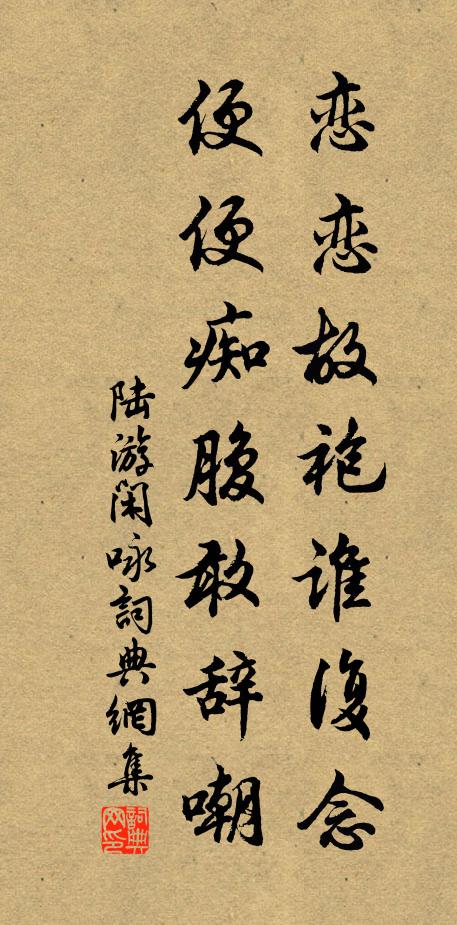 恋恋故袍谁復念
便便痴腹敢辞嘲
陆游闲咏詞典網集